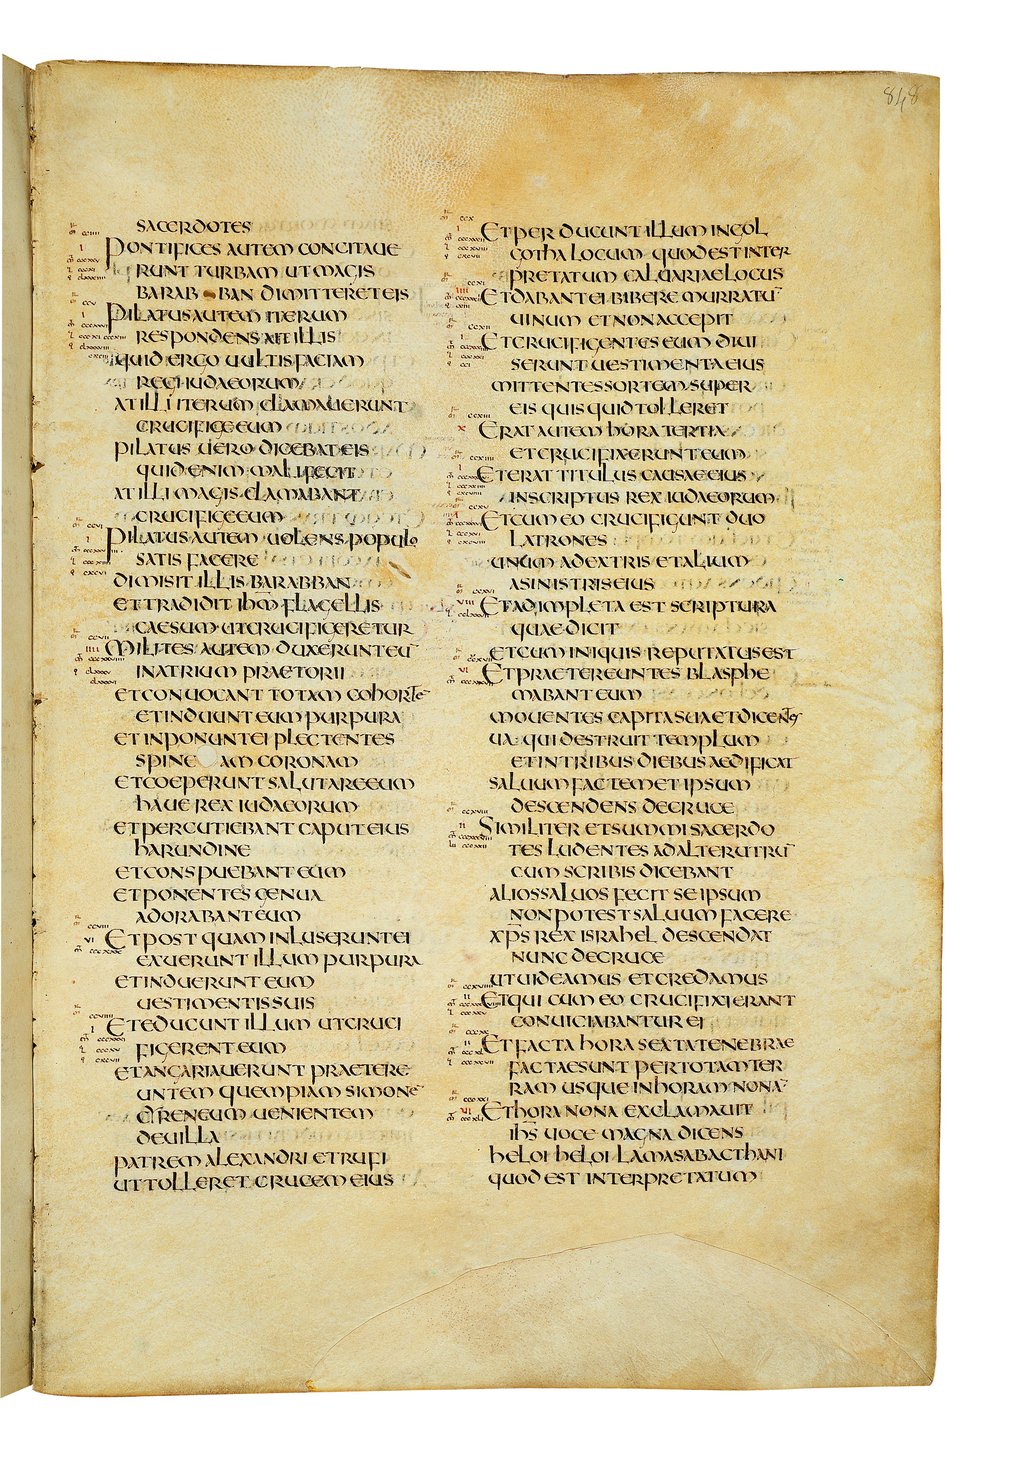 848
SACERDOTES
PONTIFICES AUTEM CONCITAUE
RUNT TURBAM UT MAGIS
BARAB BAN DIMITTERET EIS
PILATUS AUTEM ITERUM
RESPONDENS AIT ILLIS
QUID ERGO UULTIS FACIAM
REGI IUDAEORUM
AT ILLI ITERUM CLAMAUERUNT
CRUCIFIGE EUM
PILATUS UERO DICEBAT EIS
QUID ENIM MALI FECIT
AT ILLI MAGIS CLAMABANT
CRUCIFIGE EUM
PILATUS AUTEM UOLENS POPULO
SATIS FACERE
DIMISIT ILLIS BARABBAN
ET TRADIDIT IHM̄ FLAGELLIS
CAESUM UT CRUCIFIGERETUR
MILITES AUTEM DUXERUNT EU¯
IN ATRIUM PRAETORII
ET CONUOCANT TOTAM COHORTE¯
ET INDUUNT EUM PURPURA
ET INPONUNT EI PLECTENTES
SPINE AM CORONAM
ET COEPERUNT SALUTARE EUM
HAUE REX IUDAEORUM
ET PERCUTIEBANT CAPUT EIUS
HARUNDINE
ET CONSPUEBANT EUM
ET PONENTES GENUA
ADORABANT EUM
ET POST QUAM INLUSERUNT EI
EXUERUNT ILLUM PURPURA
ET INDUERUNT EUM
UESTIMENTIS SUIS
ET EDUCUNT ILLUM UT CRUCI
FIGERENT EUM
ET ANGARIAUERUNT PRAETERE
UNTEM QUEMPIAM SIMONE¯
CIRENEUM UENIENTEM
DE UILLA
PATREM ALEXANDRI ET RUFI
UT TOLLERET CRUCEM EIUS
ET PERDUCUNT ILLUM IN GOL
GOTHA LOCUM QUOD EST INTER
PRETATUM CALUARIAE LOCUS
ET DABANT EI BIBERE MURRATU¯
UINUM ET NON ACCEPIT
ET CRUCIFIGENTES EUM DIUI
SERUNT UESTIMENTA EIUS
MITTENTES SORTEM SUPER
EIS QUIS QUID TOLLERET
ERAT AUTEM HORA TERTIA
ET CRUCIFIXERUNT EUM
ET ERAT TITULUS CAUSAE EIUS
INSCRIPTUS REX IUDAEORUM
ET CUM EO CRUCIFIGUNT DUO
LATRONES
UNUM A DEXTRIS ET ALIUM
A SINISTRIS EIUS
ET ADIMPLETA EST SCRIPTURA
QUAE DICIT
ET CUM INIQUIS REPUTATUS EST
ET PRAETEREUNTES BLASPHE
MABANT EUM
MOUENTES CAPITA SUA ET DICENTES
UA QUI DESTRUIT TEMPLUM
ET IN TRIBUS DIEBUS AEDIFICAT
SALUUM FAC TEMET IPSUM
DESCENDENS DE CRUCE
SIMILITER ET SUMMI SACERDO
TES LUDENTES AD ALTERUTRU¯
CUM SCRIBIS DICEBANT
ALIOS SALUOS FECIT SE IPSUM
NON POTEST SALUUM FACERE
XPS̄ REX ISRAHEL DESCENDAT
NUNC DE CRUCE
UT UIDEAMUS ET CREDAMUS
ET QUI CUM EO CRUCIFIXI ERANT
CONUICIABANTUR EI
ET FACTA HORA SEXTA TENEBRAE
FACTAE SUNT PER TOTAM TER
RAM USQUE IN HORAM NONA¯
ET HORA NONA EXCLAMAUIT
IHS̄ UOCE MAGNA DICENS
HELOI HELOI LAMA SABACTHANI
QUOD EST INTERPRETATUM